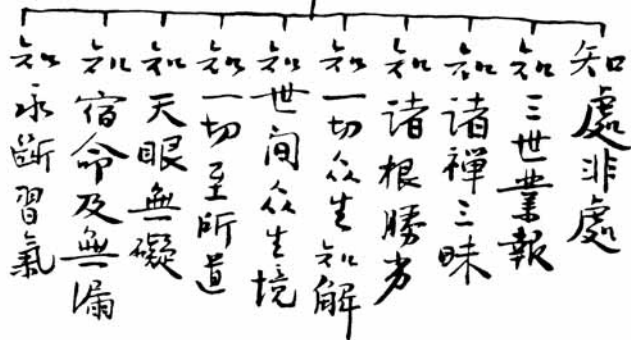 知處非處
知三世業報
知諸禪三昧
知諸根勝劣
知一切众生知解
知世间众生境
知一切至所道
知天眼無礙
知宿命及無漏
知永斷習氣